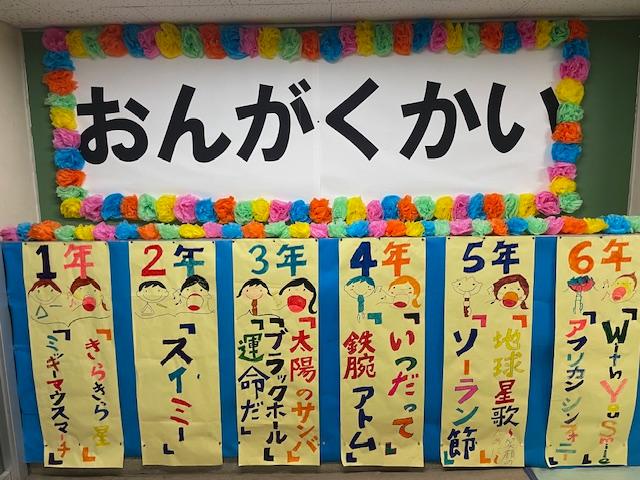 おんがくかい
1年
『きらきら星』
『ミッキーマウスマーチ』
2年
『スイミー』
3年
『太陽のサンバ』
『ブラックホール』
『運命だ』
4年
『いつだって』
『鉄腕アトム』
5年
『地球星歌
『ソーラン節』
6年
『With You Smile』
『アフリカン シンフォニー』